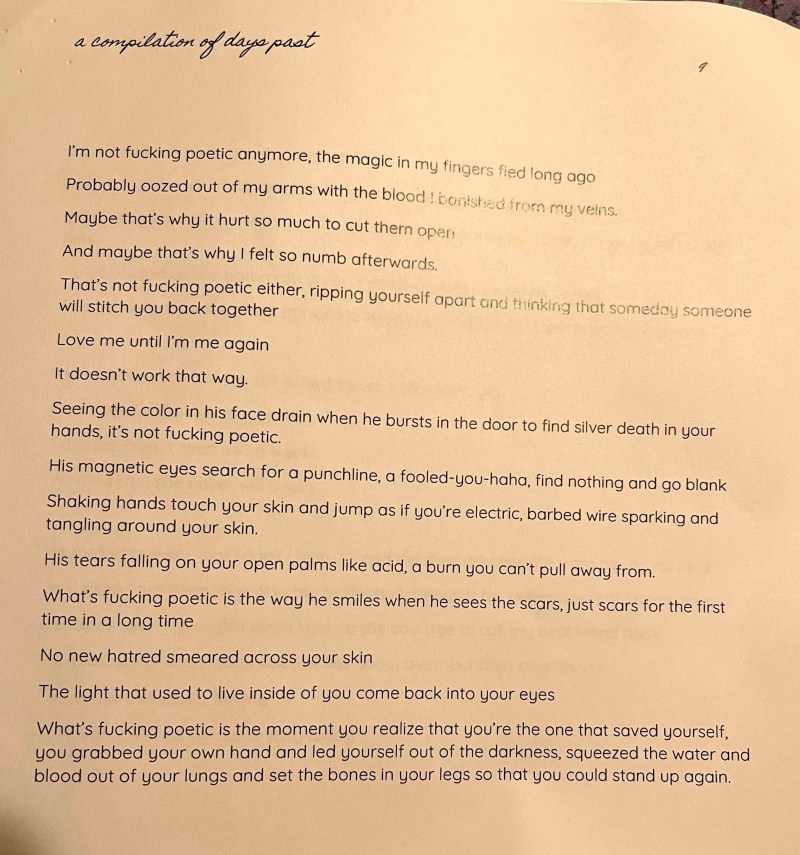 a compilation of days past
9
I'm not fucking poetic anymore, the magic in my fingers fled long ago
Probably oozed out of my arms with the blood I banished from my veins.
Maybe that's why it hurt so much to cut them open
And maybe that's why I felt so numb afterwards.
That's not fucking poetic either, ripping yourself apart and thinking that someday someone
will stitch you back together
Love me until I'm me again
It doesn't work that way.
Seeing the color in his face drain when he bursts in the door to find silver death in your
hands, it's not fucking poetic.
His magnetic eyes search for a punchline, a fooled-you-haha, find nothing and go blank
Shaking hands touch your skin and jump as if you're electric, barbed wire sparking and
tangling around your skin.
His tears falling on your open palms like acid, a burn you can't pull away from.
What's fucking poetic is the way he smiles when he sees the scars, just scars for the first
time in a long time
No new hatred smeared across your skin
The light that used to live inside of you come back into your eyes
What's fucking poetic is the moment you realize that you're the one that saved yourself,
you grabbed your own hand and led yourself out of the darkness, squeezed the water and
blood out of your lungs and set the bones in your legs so that you could stand up again.